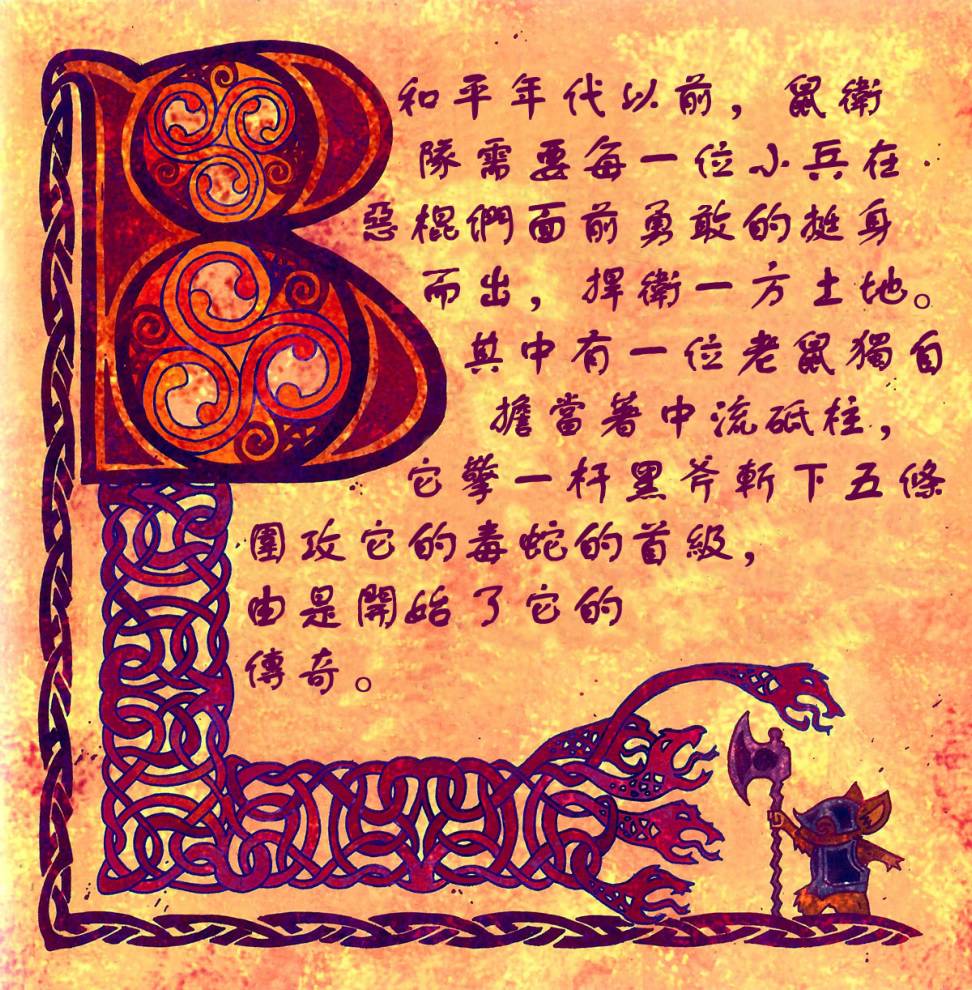 和平年代以前，鼠衛
隊需要每一位小兵在
惡棍們面前勇敢的挺身
而出，捍衛一方土地。
其中有一位老鼠獨自
擔當著中流砥柱，
它擎一杆黑斧斬下五條
圍攻它的毒蛇的首級，
由是開始了它的
傳奇。